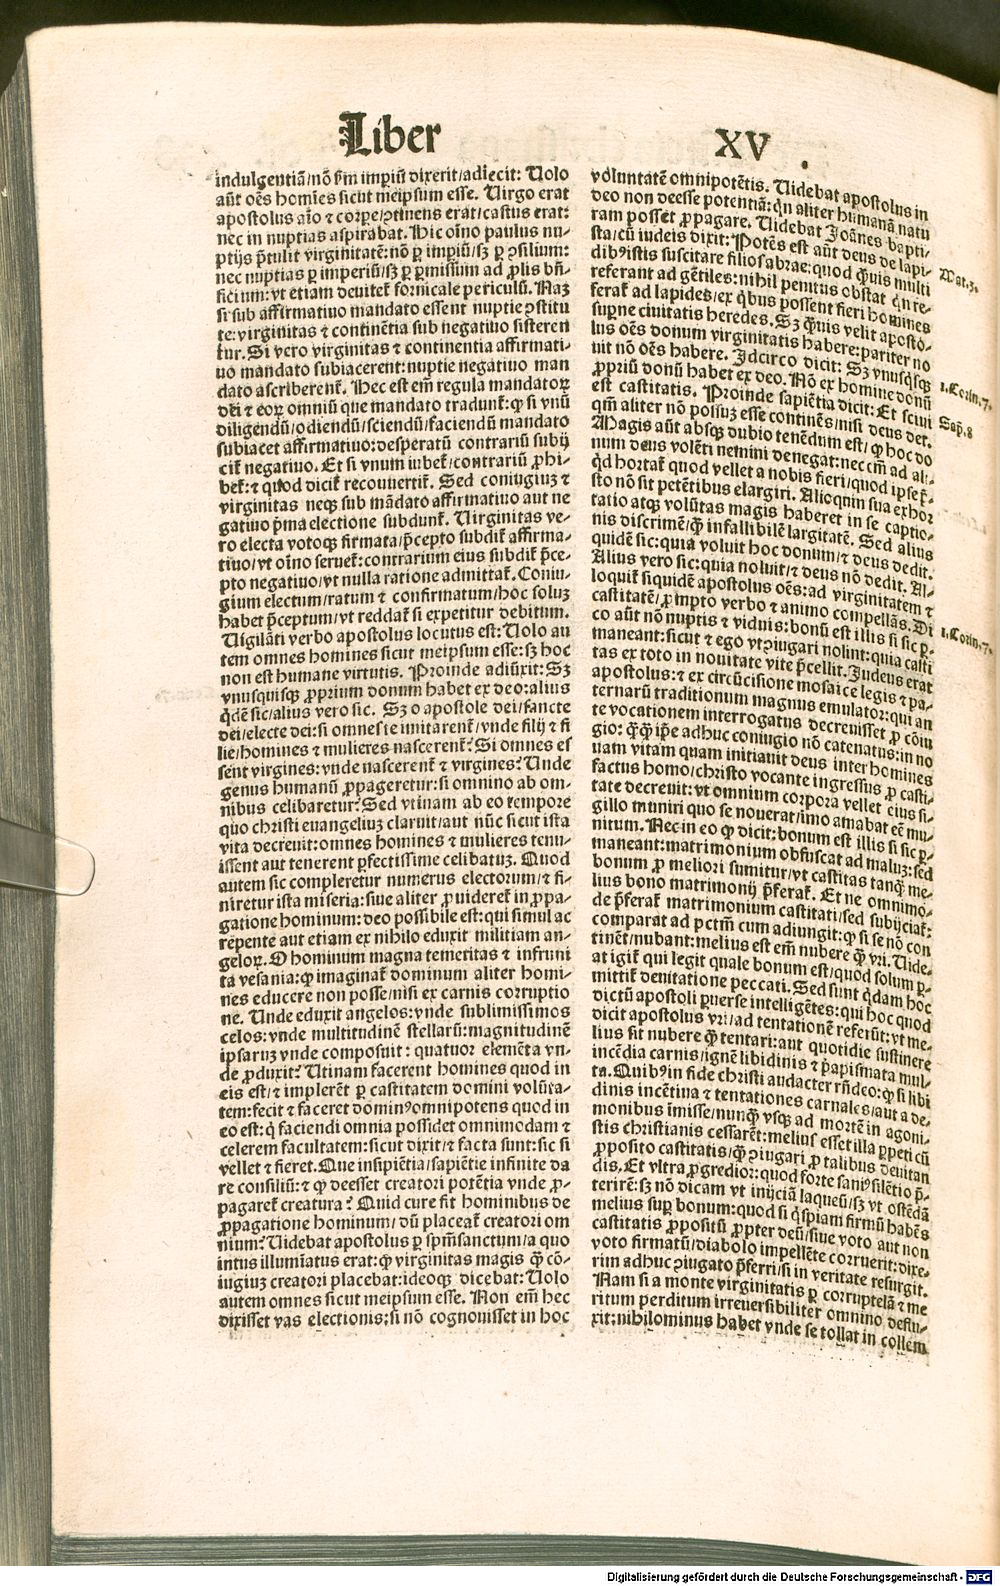 Liber XV.
indulgentiā/nō s̄m imperiū dixerit/adiecit: Uolo
aūt oēs homīes sicut meipsum esse. Virgo erat
apostolus aīo ⁊ corpe/ꝯtinens erat/castus erat:
nec in nuptias aspirabat. Hic oīno paulus nu-
ptijs p̄tulit virginitatē: nō ꝑ impiū/sꝫ ꝑ ꝯsilium:
nec nuptias ꝑ imperiū/sꝫ ꝑ ꝑmissum ad ꝓlis bn̄-
ficium: vt etiam deuitet̄ fornicale periculū. Naꝫ
si sub affirmatiuo mandato essent nuptie ꝯstitu
te: virginitas ⁊ continētia sub negatiuo sisteren
tur. Si vero virginitas ⁊ continentia affirmati-
uo mandato subiacerent: nuptie negatiuo man
dato ascriberent̄. Hec est em̄ regula mandatoꝝ
dei ⁊ eoꝝ omniū que mandato tradunt̄: ꝙ si vnū
diligendū/odiendū/sciendū/faciendū mandato
subiacet affirmatiuo: desperatū contrariū subij
cit̄ negatiuo. Et si vnum iubet̄/contrariū ꝓhi-
bet̄: ⁊ quod dicit̄ recouertit̄. Sed coniugiuꝫ ⁊
virginitas neqꝫ sub mādato affirmatiuo aut ne
gatiuo p̄ma electione subdunt̄. Uirginitas ve-
ro electa votoqꝫ firmata/p̄cepto subdit̄ affirma-
tiuo/vt oīno seruet̄: contrarium eius subdit̄ p̄ce-
pto negatiuo/vt nulla ratione admittat̄. Coniu-
gium electum/ratum ⁊ confirmatum/hoc soluꝫ
habet p̄ceptum/vt reddat̄ si expetitur debitum.
Uigilāti verbo apostolus locutus est: Uolo au
tem omnes homines sicut meipsum esse: sꝫ hoc
non est humane virtutis. Proinde adiūxit: Sꝫ
vnusquisqꝫ ꝓprium donum habet ex deo: alius
q̄dē sic/alius vero sic. Sꝫ o apostole dei/sancte
dei/electe dei: si omnes te imitarent̄/vnde filij ⁊ fi
lie/homines ⁊ mulieres nascerent̄? Si omnes es
sent virgines: vnde nascerent̄ ⁊ virgines? Unde
genus humanū ꝓpageretur: si omnino ab om-
nibus celibaretur? Sed vtinam ab eo tempore
quo christi euangeliuꝫ claruit/aut nūc sicut ista
vita decreuit: omnes homines ⁊ mulieres tenu-
issent aut tenerent ꝑfectissime celibatuꝫ. Quod
autem sic compleretur numerus electorum/⁊ fi-
niretur ista miseria: siue aliter ꝓuideret̄ in ꝓpa-
gatione hominum: deo possibile est: qui simul ac
repente aut etiam ex nihilo eduxit militiam an-
geloꝝ. O hominum magna temeritas ⁊ infruni
ta vesania: ꝙ imaginat̄ dominum aliter homi-
nes educere non posse/nisi ex carnis corruptio
ne. Unde eduxit angelos: vnde sublimissimos
celos: vnde multitudinē stellarū: magnitudinē
ipsaruꝫ vnde composuit: quatuor elemēta vn-
de ꝓduxit? Utinam facerent homines quod in
eis est/⁊ implerēt ꝑ castitatem domini volūta-
tem: fecit ⁊ faceret dominꝰ omnipotens quod in
eo est: q̇ faciendi omnia possidet omnimodam ⁊
celerem facultatem: sicut dixit/⁊ facta sunt: sic si
vellet ⁊ fieret. Que insipiētia/sapiētie infinite da
re consiliū: ⁊ ꝙ deesset creatori potētia vnde ꝓ-
pagaret̄ creatura? Quid cure fit hominibus de
ꝓpagatione hominum/dū placeat̄ creatori om
nium? Uidebat apostolus ꝑ sp̄msanctum/a quo
intus illuminatus erat: ꝙ virginitas magis q̄ȝ cō-
iugiuꝫ creatori placebat: ideoqꝫ dicebat: Uolo
autem omnes sicut meipsum esse. Non em̄ hec
dixisset vas electionis: si nō cognouisset in hoc
voluntatē omnipotētis. Uidebat apostolus in
deo non deesse potentiā: q̇n aliter humanā natu
ram posset ꝓpagare. Uidebat Joānes bapti-
sta/cū iudeis dixit: Potēs est aūt deus de lapi-
dibꝰ istis suscitare filios abrae: quod q̄ȝuis multi
referant ad gētiles: nihil penitus obstat q̇n re-
ferat̄ ad lapides/ex q̇bus possent fieri homines
supne ciuitatis heredes. Sꝫ q̄ȝuis velit aposto-
lus oēs donum virginitatis habere: pariter no
uit nō oēs habere. Idcirco dicit: Sꝫ vnusq̇sqꝫ
ꝓpriū donū habet ex deo. Nō ex homine donū
est castitatis. Proinde sapiētia dicit: Et sciui
qm̄ aliter nō possuꝫ esse continēs/nisi deus det.
Magis aūt absqꝫ dubio tenēdum est/ꝙ hoc do
num deus volēti nemini denegat: nec em̄ ad ali-
q̇d hortat̄ quod vellet a nobis fieri/quod ipse p̄-
sto nō sit petētibus elargiri. Alioquin sua exhor
tatio atqꝫ volūtas magis haberet in se captio-
nis discrimē/q̄ȝ infallibilē largitatē. Sed alius
quidē sic: quia voluit hoc donum/⁊ deus dedit.
Alius vero sic: quia noluit/⁊ deus nō dedit. Al-
loquit̄ siquidē apostolus oēs: ad virginitatem ⁊
castitatē/ꝓmpto verbo ⁊ animo compellās. Di
co aūt nō nuptis ⁊ viduis: bonū est illis si sic ꝑ-
maneant: sicut ⁊ ego vt ꝯiugari nolint: quia casti
tas ex toto in nouitate vite p̄cellit. Judeus erat
apostolus: ⁊ ex circūcisione mosaice legis ⁊ pa-
ternarū traditionum magnus emulator: qui an
te vocationem interrogatus decreuisset ꝓ cōiu
gio: q̄ȝq̄ȝ ip̄e adhuc coniugio nō catenatus: in no
uam vitam quam initiauit deus inter homines
factus homo/christo vocante ingressus ꝓ casti-
tate decreuit: vt omnium corpora vellet eius si-
gillo muniri quo se nouerat/imo amabat eē mu-
nitum. Nec in eo ꝙ dicit: bonum est illis si sic ꝑ-
maneant: matrimonium obfuscat ad maluꝫ: sed
bonum ꝓ meliori sumitur/vt castitas tanq̄ȝ me-
lius bono matrimonij p̄ferat̄. Et ne omnimo-
de p̄ferat̄ matrimonium castitati/sed subijciat̄:
comparat ad pctm̄ cum adiungit: ꝙ si se nō con
tinēt/nubant: melius est em̄ nubere q̄ȝ vri. Uide-
at igit̄ qui legit quale bonum est/quod solum ꝑ-
mittit̄ deuitatione peccati. Sed sunt q̇dam hoc
dictū apostoli ꝑuerse intelligētes: qui hoc quod
dicit apostolus vri/ad tentationē referūt: vt me-
lius sit nubere q̄ȝ tentari: aut quotidie sustinere
incēdia carnis/ignē libidinis ⁊ p̄apismata mul-
ta. Quibꝰ in fide christi audacter rn̄deo: ꝙ si libi
dinis incētiua ⁊ tentationes carnales/aut a de-
monibus īmisse/nunq̄ȝ vsqꝫ ad mortē in agoni-
stis christianis cessarēt: melius esset illa ꝑpeti cū
ꝓposito castitatis/q̄ȝ ꝯiugari ꝓ talibus deuitan
dis. Et vltra ꝓgredior: quod forte saniꝰ silētio p̄-
terirē: sꝫ nō dicam vt inijciā laqueū/sꝫ vt ostēdā
melius suꝑ bonum: quod si q̇spiam firmū habēs
castitatis ꝓpositū ꝓpter deū/siue voto aut non
voto firmatū/diabolo impellēte corruerit: dixe-
rim adhuc ꝯiugato p̄ferri/si in veritate resurgit.
Nam si a monte virginitatis ꝑ corruptelā ⁊ me
ritum perditum irreuersibiliter omnino deflu-
xit: nihilominus habet vnde se tollat in collem
Mat.3.
1.Corin.7.
Sap.8
1.Corin.7.
Digitalisierung gefördert durch die Deutsche Forschungsgemeinschaft - DFG